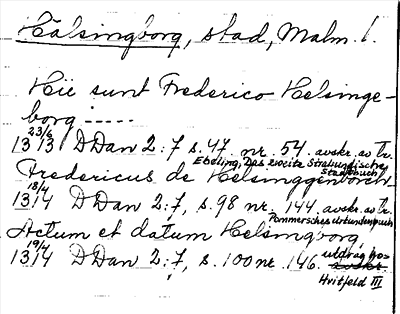 Hälsingborg, stad, Malm. l.
Hii sunt Frederico Helsinge-
borg -----
23/6
1313 DDan 2:7 s.47 nr. 54. avskr. av Tr.
Ebeling, Das zweite Stralsundische
Stadtbuch
Fredericus de Helsinggenborch
18/4
1314 DDan 2:7, s.98 nr. 144 avskr. av Tr.
Pommersches Urkundenbuch
Actum et datum Helsingborg.
19/4
1314 DDan 2:7, s.100 nr. 146. utdrag hos
Hvitfeld III